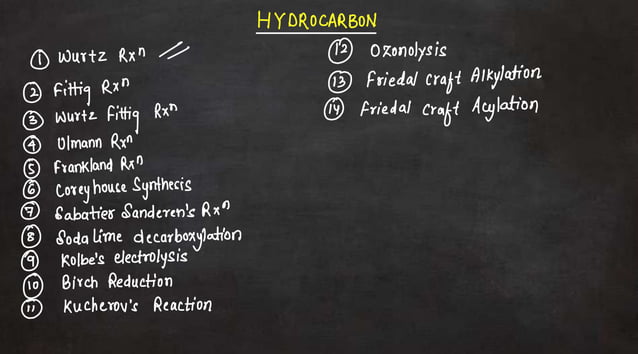 HYDROCARBON
1 Wurtz Rxn
2 Fittig Rxn
3 Wurtz Fittig Rxn
4 Ulmann Rxn
5 Frankland Rxn
6 Corey house Synthesis
7 Sabatier Sanderen's Rxn
8 Soda lime decarboxylation
9 Kolbe's electrolysis
10 Birch Reduction
11 Kucherov's Reaction
12 Ozonolysis
13 Friedal Craft Alkylation
14 Friedal Craft Acylation